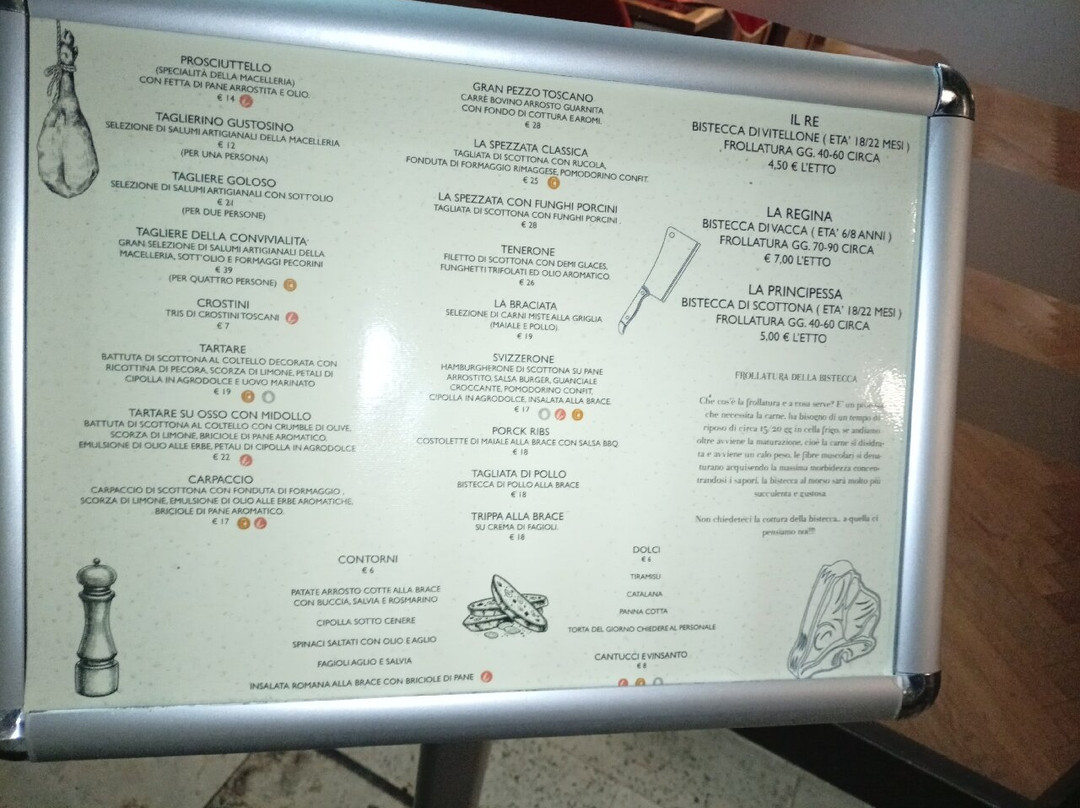 PROSCIUTTELLO
(SPECIALITÀ DELLA MACELLERIA)
CON FETTA DI PANE ARROSTITA E OLIO.
€ 14
TAGLIERINO GUSTOSINO
SELEZIONE DI SALUMI ARTIGIANALI DELLA MACELLERIA
€ 12
(PER UNA PERSONA)
TAGLIERE GOLOSO
SELEZIONE DI SALUMI ARTIGIANALI CON SOTT'OLIO
€ 21
(PER DUE PERSONE)
TAGLIERE DELLA CONVIVIALITA'
GRAN SELEZIONE DI SALUMI ARTIGIANALI DELLA
MACELLERIA, SOTT'OLIO E FORMAGGI PECORINI
€ 39
(PER QUATTRO PERSONE)
CROSTINI
TRIS DI CROSTINI TOSCANI
€ 7
TARTARE
BATTUTA DI SCOTTONA AL COLTELLO DECORATA CON
RICOTTINA DI PECORA, SCORZA DI LIMONE, PETALI DI
CIPOLLA IN AGRODOLCE E UOVO MARINATO
€ 19
TARTARE SU OSSO CON MIDOLLO
BATTUTA DI SCOTTONA AL COLTELLO CON CRUMBLE DI OLIVE,
SCORZA DI LIMONE, BRICIOLE DI PANE AROMATICO,
EMULSIONE DI OLIO ALLE ERBE, PETALI DI CIPOLLA IN AGRODOLCE
€ 22
CARPACCIO
CARPACCIO DI SCOTTONA CON FONDUTA DI FORMAGGIO ,
SCORZA DI LIMONE, EMULSIONE DI OLIO ALLE ERBE AROMATICHE,
BRICIOLE DI PANE AROMATICO.
€ 17
GRAN PEZZO TOSCANO
CARRÈ BOVINO ARROSTO GUARNITA
CON FONDO DI COTTURA E AROMI.
€ 28
LA SPEZZATA CLASSICA
TAGLIATA DI SCOTTONA CON RUCOLA,
FONDUTA DI FORMAGGIO RIMAGGESE, POMODORINO CONFIT.
€ 25
LA SPEZZATA CON FUNGHI PORCINI
TAGLIATA DI SCOTTONA CON FUNGHI PORCINI .
€ 28
TENERONE
FILETTO DI SCOTTONA CON DEMI GLACES,
FUNGHETTI TRIFOLATI ED OLIO AROMATICO.
€ 26
LA BRACIATA
SELEZIONE DI CARNI MISTE ALLA GRIGLIA
(MAIALE E POLLO).
€ 19
SVIZZERONE
HAMBURGHERONE DI SCOTTONA SU PANE
ARROSTITO, SALSA BURGER, GUANCIALE
CROCCANTE, POMODORINO CONFIT,
CIPOLLA IN AGRODOLCE, INSALATA ALLA BRACE.
€ 17
PORCK RIBS
COSTOLETTE DI MAIALE ALLA BRACE CON SALSA BBQ
€ 18
TAGLIATA DI POLLO
BISTECCA DI POLLO ALLA BRACE
€ 18
TRIPPA ALLA BRACE
SU CREMA DI FAGIOLI.
€ 18
IL RE
BISTECCA DI VITELLONE ( ETA' 18/22 MESI )
FROLLATURA GG. 40-60 CIRCA
4,50 € L'ETTO
LA REGINA
BISTECCA DI VACCA ( ETA' 6/8 ANNI )
FROLLATURA GG. 70-90 CIRCA
€ 7,00 L'ETTO
LA PRINCIPESSA
BISTECCA DI SCOTTONA ( ETA' 18/22 MESI )
FROLLATURA GG. 40-60 CIRCA
5,00 € L'ETTO
FROLLATURA DELLA BISTECCA
Che cos'è la frollatura e a cosa serve? E' un
che necessita la carne, ha bisogno di un tempo di
riposo di circa 15/20 gg in cella frigo, se andiamo
oltre avviene la maturazione, cioè la carne si disidra-
ta e avviene un calo peso, le fibre muscolari si dena-
turano acquisendo la massima morbidezza concen-
trandosi i sapori, la bistecca al morso sarà molto più
succulenta e gustosa
Non chiedeteci la cottura della bistecca.. a quella ci
pensiamo noi!!!
CONTORNI
€ 6
PATATE ARROSTO COTTE ALLA BRACE
CON BUCCIA, SALVIA E ROSMARINO
CIPOLLA SOTTO CENERE
SPINACI SALTATI CON OLIO E AGLIO
FAGIOLI AGLIO E SALVIA
INSALATA ROMANA ALLA BRACE CON BRICIOLE DI PANE
DOLCI
€ 6
TIRAMISÙ
CATALANA
PANNA COTTA
TORTA DEL GIORNO CHIEDERE AL PERSONALE
CANTUCCI E VINSANTO
€ 8